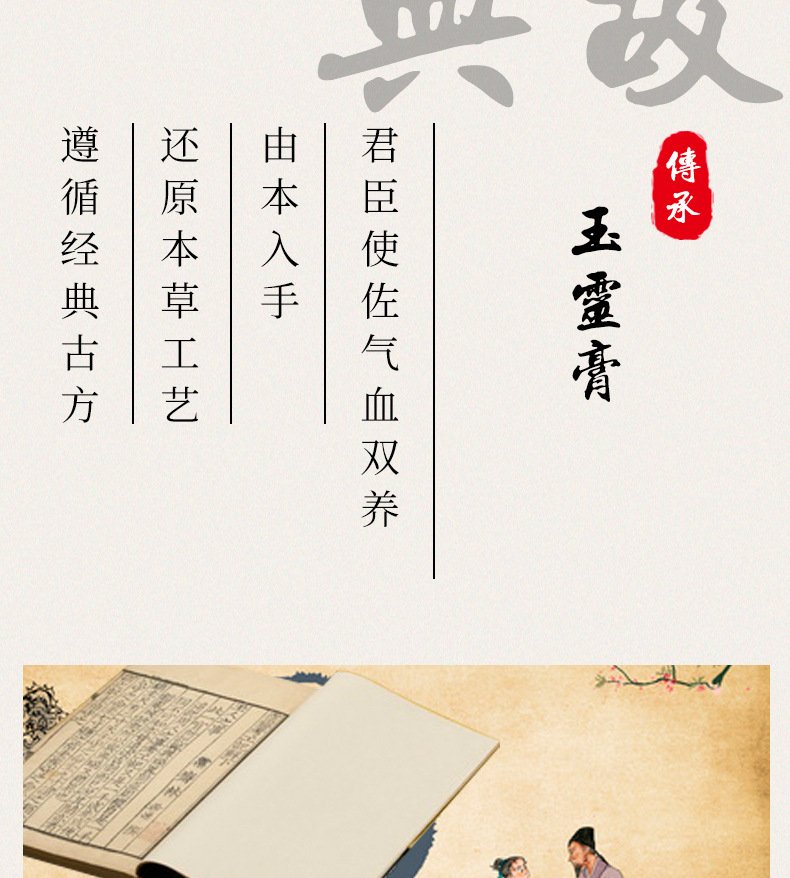 典故
傳承
玉靈膏
君臣使佐气血双养
由本入手
还原本草工艺
遵循经典古方